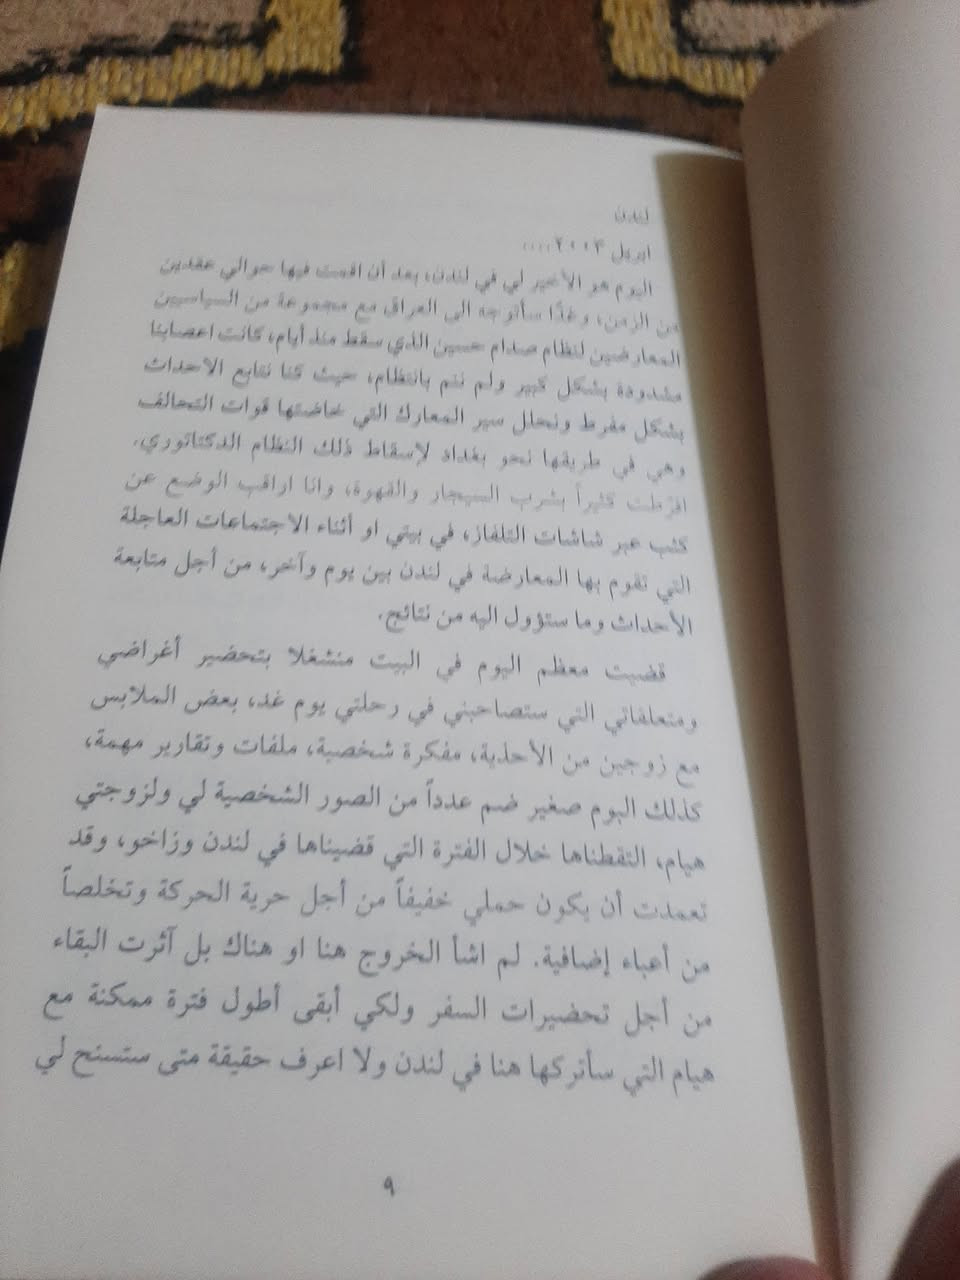 لندن
ابريل ٢٠٠٣....
اليوم هو الأخير لي في لندن، بعد أن اقمت فيها حوالي عقدين
من الزمن، وغدًا سأتوجه الى العراق مع مجموعة من السياسين
المعارضين لنظام صدام حسين الذي سقط منذ أيام، كانت اعصابنا
مشدودة بشكل كبير ولم ننم بانتظام، حيث كنا نتابع الاحداث
بشكل مفرط ونحلل سير المعارك التي خاضتها قوات التحالف
وهي في طريقها نحو بغداد لإسقاط ذلك النظام الدكتاتوري.
افرطت كثيراً بشرب السيجار والقهوة، وانا اراقب الوضع عن
كثب عبر شاشات التلفاز، في بيتي او أثناء الاجتماعات العاجلة
التي تقوم بها المعارضة في لندن بين يوم وآخر، من أجل متابعة
الأحداث وما ستؤول اليه من نتائج.
قضيت معظم اليوم في البيت منشغلا بتحضير أغراضي
ومتعلقاتي التي ستصاحبني في رحلتي يوم غد، بعض الملابس
مع زوجين من الأحذية، مفكرة شخصية، ملفات وتقارير مهمة،
كذلك البوم صغير ضم عدداً من الصور الشخصية لي ولزوجتي
هيام، التقطناها خلال الفترة التي قضيناها في لندن وزاخو، وقد
تعمدت أن يكون حملي خفيفاً من أجل حرية الحركة وتخلصاً
من أعباء إضافية. لم اشأ الخروج هنا او هناك بل آثرت البقاء
من أجل تحضيرات السفر ولكي أبقى أطول فترة ممكنة مع
هيام التي سأتركها هنا في لندن ولا اعرف حقيقة متى ستسنح لي
٩